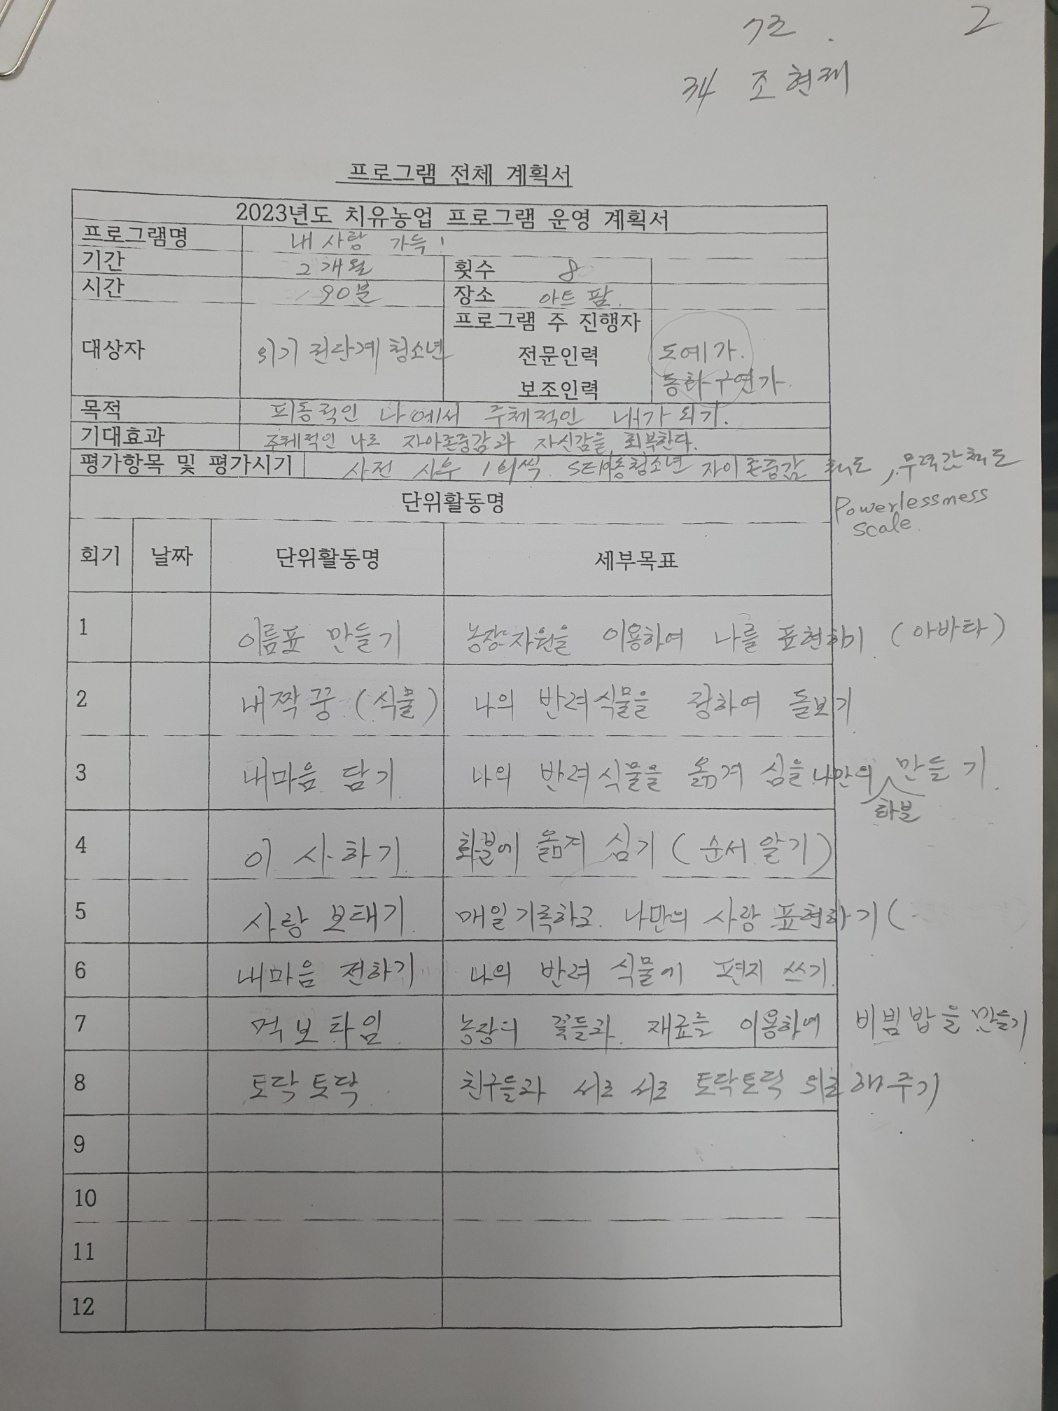 7조. 2
34 조현재
프로그램 전체 계획서
2023년도 치유농업 프로그램 운영 계획서
프로그램명 내 사랑 가득!
기간 2개월 횟수 8
시간 90분 장소 아트팜.
대상자 위기 전단계 청소년 프로그램 주 진행자
전문인력 도예가.
보조인력 동화구연가.
목적 피동적인 나에서 주체적인 내가 되기.
기대효과 주체적인 나로 자아존중감과 자신감을 회복한다.
평가항목 및 평가시기 사전 사후 1회씩. SEI 청소년 자아존중감 척도, 무력감척도
Powerlessmess
scale.
단위활동명
회기 날짜 단위활동명 세부목표
1 이름표 만들기 농장자원을 이용하여 나를 표현하기 (아바타)
2 내짝꿍 (식물) 나의 반려식물을 정하여 돌보기
3 내마음 담기 나의 반려식물을 옮겨 심을 나만의 만들기
화분
4 이사하기 화분에 옮겨 심기 (순서 알기)
5 사랑 보태기 매일 기록하고 나만의 사랑 표현하기 (
6 내마음 전하기 나의 반려 식물에 편지 쓰기
7 먹보타임 농장의 꽃들과 재료를 이용하여 비빔밥을 만들기
8 토닥토닥 친구들과 서로 서로 토닥토닥 위로해주기
9
10
11
12